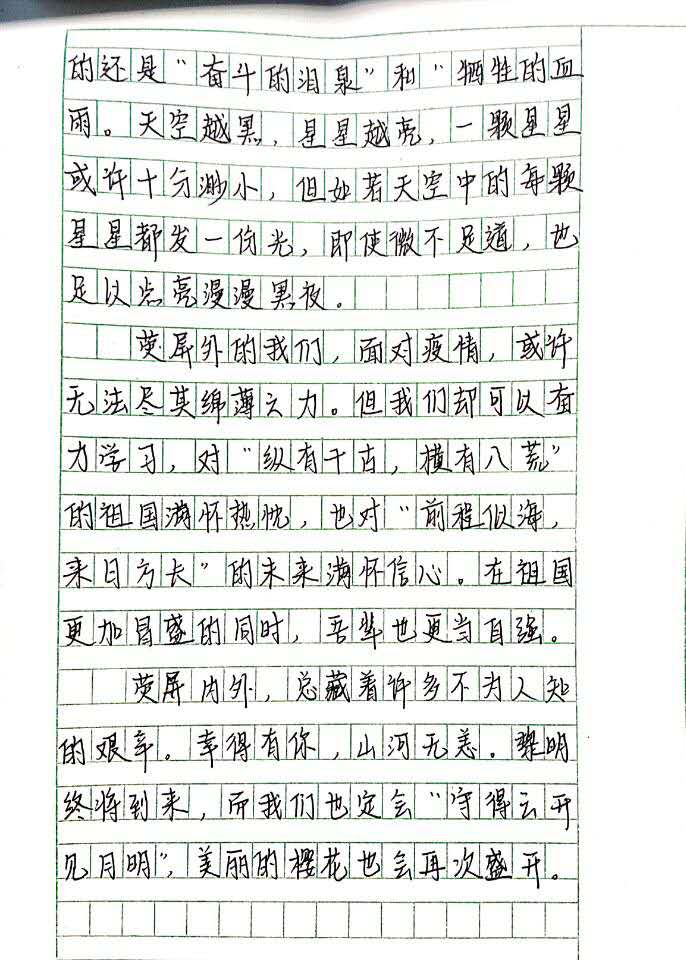 的还是“奋斗的泪泉”和“牺牲的血
雨。天空越黑，星星越亮，一颗星星
或许十分渺小，但如若天空中的每颗
星星都发一份光，即使微不足道，也
足以点亮漫漫黑夜。
荧屏外的我们，面对疫情，或许
无法尽其绵薄之力。但我们却可以奋
力学习，对“纵有千古，横有八荒”
的祖国满怀热忱，也对“前程似海，
来日方长”的未来满怀信心。在祖国
更加昌盛的同时，吾辈也更当自强。
荧屏内外，总藏着许多不为人知
的艰辛。幸得有你，山河无恙。黎明
终将到来，而我们也定会“守得云开
见月明”，美丽的樱花也会再次盛开。